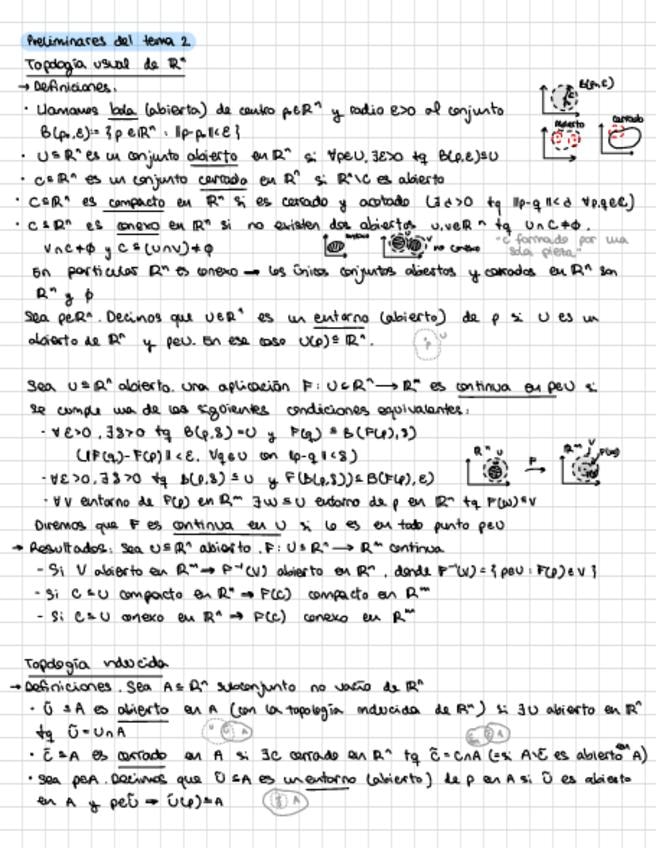 Preliminares del tema 2
Topología usual de ℝⁿ
→ Definiciones:
· Llamamos bola (abierta) de centro p₀∈ℝⁿ y radio ε>0 al conjunto
B(p₀,ε)={p∈ℝⁿ : ‖p-p₀‖<ε}
B(p₀,ε)
Abierto
cerrado
· U⊆ℝⁿ es un conjunto abierto en ℝⁿ si ∀p∈U, ∃ε>0 tq B(p,ε)⊆U
· C⊆ℝⁿ es un conjunto cerrado en ℝⁿ si ℝⁿ\C es abierto
· C⊆ℝⁿ es compacto en ℝⁿ si es cerrado y acotado (∃d>0 tq ‖p-q‖<d ∀p,q∈C)
· C⊆ℝⁿ es conexo en ℝⁿ si no existen dos abiertos U,V∈ℝⁿ tq U∩C≠∅,
V∩C≠∅ y C⊆(U∩V)≠∅
no conexo
"C formado por una
sola pieza"
En particular ℝⁿ es conexo → los únicos conjuntos abiertos y cerrados en ℝⁿ son
ℝⁿ y ∅
Sea p∈ℝⁿ. Decimos que U∈ℝⁿ es un entorno (abierto) de p si U es un
abierto de ℝⁿ y p∈U. En ese caso U(p)⊆ℝⁿ.
Sea U⊆ℝⁿ abierto. Una aplicación F: U⊂ℝⁿ→ℝᵐ es continua en p∈U si
se cumple una de las siguientes condiciones equivalentes:
· ∀ε>0, ∃δ>0 tq B(p,δ)=U y F(q)⊆B(F(p),δ)
(‖F(q)-F(p)‖<ε, ∀q∈U con ‖p-q‖<δ)
· ∀ε>0, ∃δ>0 tq B(p,δ)⊆U y F(B(p,δ))⊆B(F(p),ε)
ℝⁿ U
F
ℝᵐ V F(p)
· ∀V entorno de F(p) en ℝᵐ ∃W⊆U entorno de p en ℝⁿ tq F(W)⊆V
Diremos que F es continua en U si lo es en todo punto p∈U
→ Resultados: Sea U⊆ℝⁿ abierto, F: U⊆ℝⁿ→ℝᵐ continua
- Si V abierto en ℝᵐ → F⁻¹(V) abierto en ℝⁿ, donde F⁻¹(V)={p∈U : F(p)∈V}
- Si C⊆U compacto en ℝⁿ → F(C) compacto en ℝᵐ
- Si C⊆U conexo en ℝⁿ → F(C) conexo en ℝᵐ
Topología inducida
→ Definiciones. Sea A⊆ℝⁿ subconjunto no vacío de ℝⁿ
· Ũ⊆A es abierto en A (con la topología inducida de ℝⁿ) si ∃U abierto en ℝⁿ
tq Ũ=U∩A
· C̃⊆A es cerrado en A si ∃C cerrado en ℝⁿ tq C̃=C∩A (⇔si A\C̃ es abierto en A)
· Sea p∈A. Decimos que Ũ⊆A es un entorno (abierto) de p en A si Ũ es abierto
en A y p∈Ũ → Ũ(p)⊆A